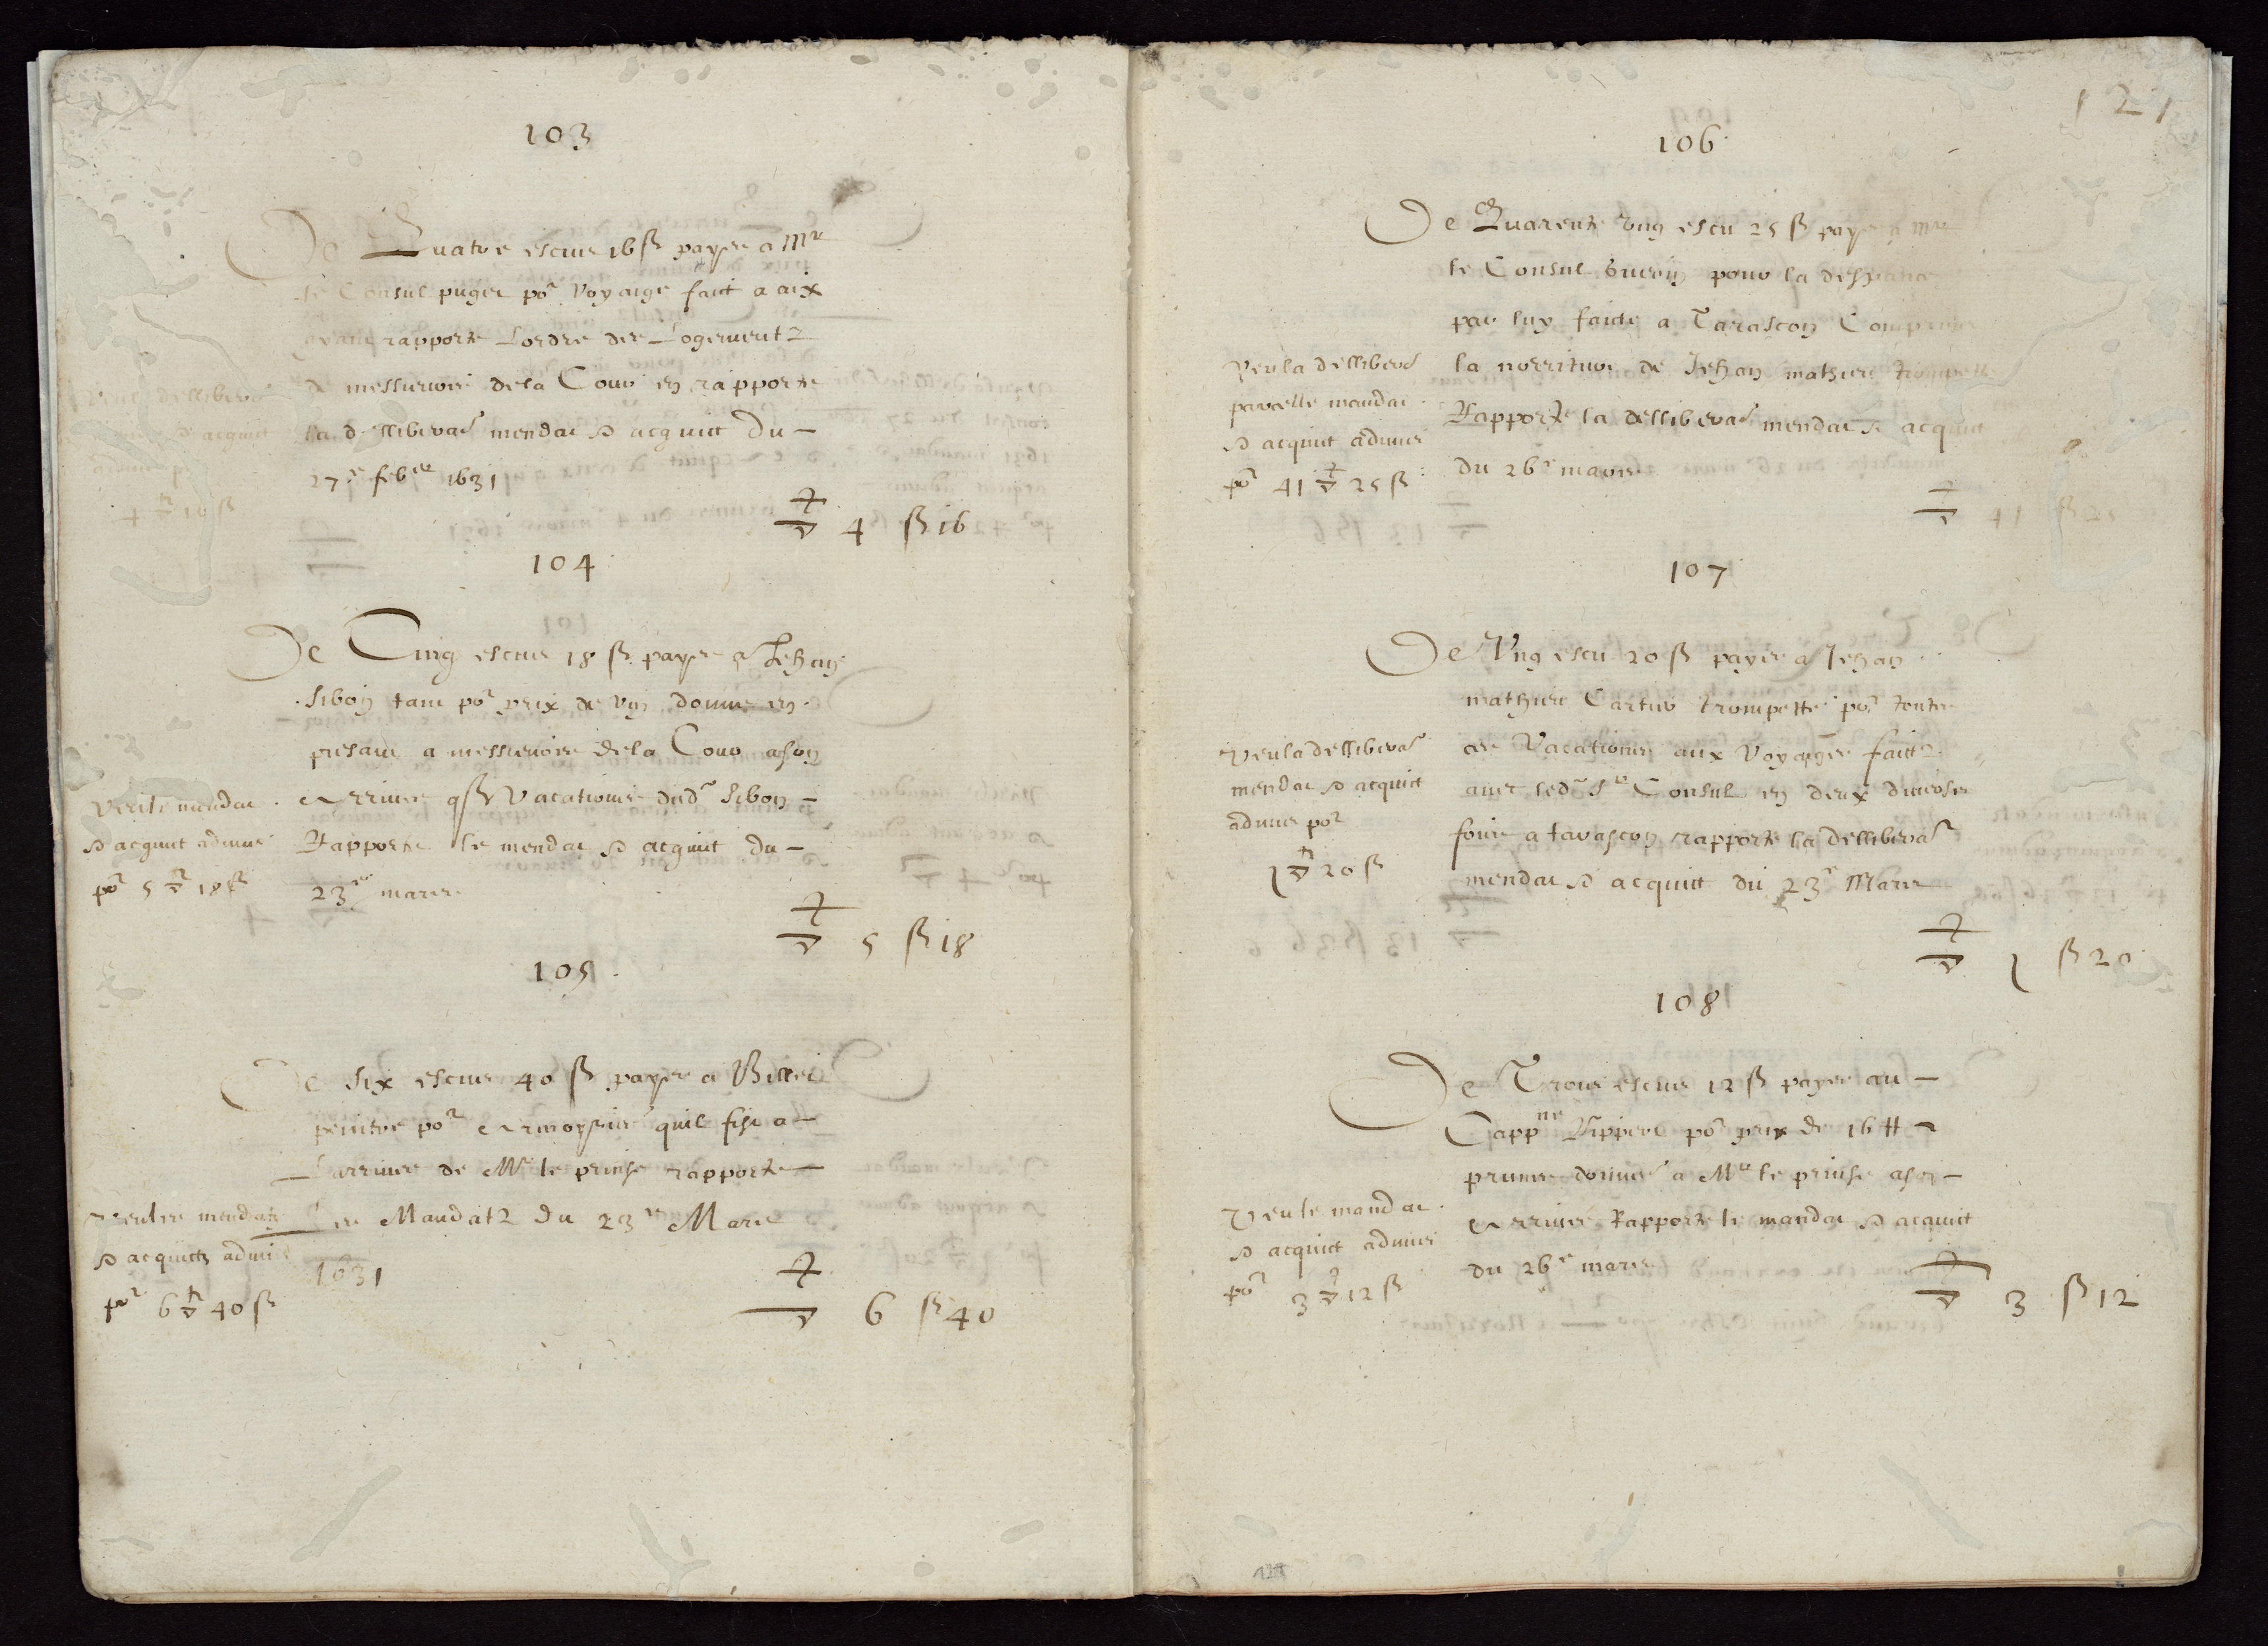 103
De Quatre escus 16 ß payes a Mr
le Consul puget por voyaige faict a aix
ayant rapporté Lordre des Logementz
de messieurs de la Cour en rapporte
la delliberaõn mandat & acquict du
27e feber 1631
Veu la delliberaõn
& acquict
4 16 ß
4 ß 16
104
De Cinq escus 18 ß payes a Jehan
Sibon tant por prix de vin donné en
presant a messieurs de la Cour a son
Arrivee q vacations dudt Sibon
Rapporte le mendat & acquict du
23e mars
Veu le mandat
& acquict admis
por 5 18 ß
5 ß 18
105
De Six escus 40 ß payes a
peintre por Armoyries quil fist a
Larrivee de Mr le prinse rapporte
Les Mandatz du 23e Mars
1631
Veu les mendatz
& acquictz admis
por 6 40 ß
6 ß 40
121
106
De Quarente Ung escu 25 ß payes a Mr
le Consul pour la
par luy faicte a Tarascon Comprins
la norriture de Jehan mathieu trompette
Rapporte la delliberaõn mendat & acquict
du 26e mars
Veu la delliberaõn
parcelle mandat
& acquict admis
por 41 25 ß
41 ß 25
107
De Ung escu 20 ß payes a Jehan
mathieu trompette por toutes
ces Vacations aux Voyaiges faictz
avec ledt Sr Consul en deux diverses
fois a tarascon rapporte la delliberaõn
mendat & acquict du 23e Mars
Veu la delliberaõn
mendat & acquict
admis por
1 20 ß
1 ß 20
108
De Trois escus 12 ß payes au
Cappne por prix de 16 tt
prunes donnés a Mr le prinse a son
Arrivee Rapporte le mandat & acquict
du 26e mars
Veu le mandat
& acquict admis
por 3 12 ß
3 ß 12